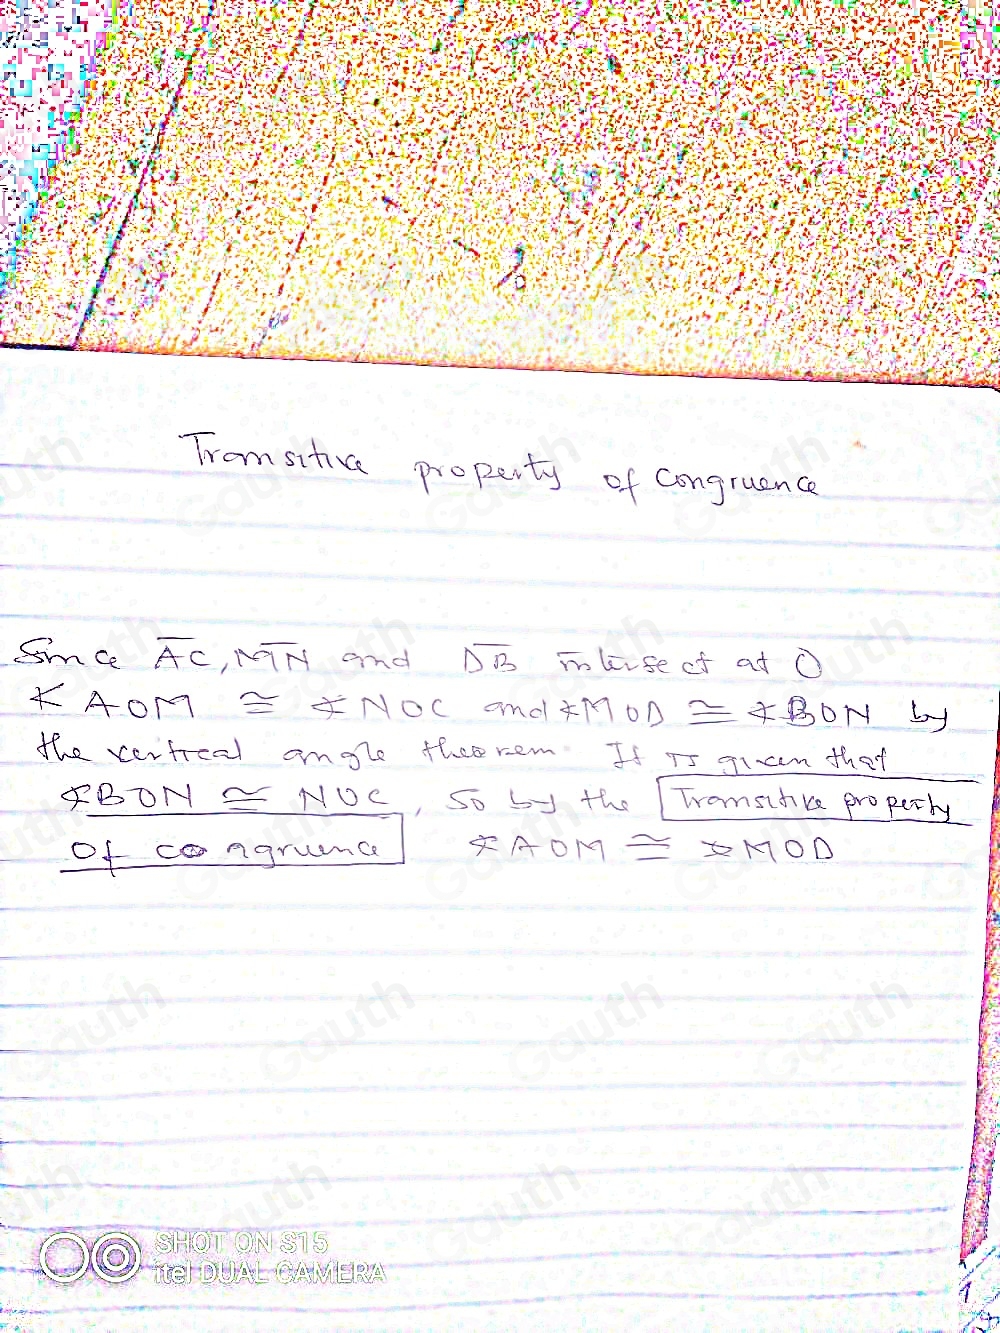 Transitive property of congruence
Since AC, MN and DB intersect at O
∢AOM ≅ ∢NOC and ∢MOD ≅ ∢BON by
the vertical angle theorem. It is given that
∢BON ≅ NOC, so by the Transitive property
of congruence ∢AOM ≅ ∢MOD
SHOT ON S15
itel DUAL CAMERA
Gauth